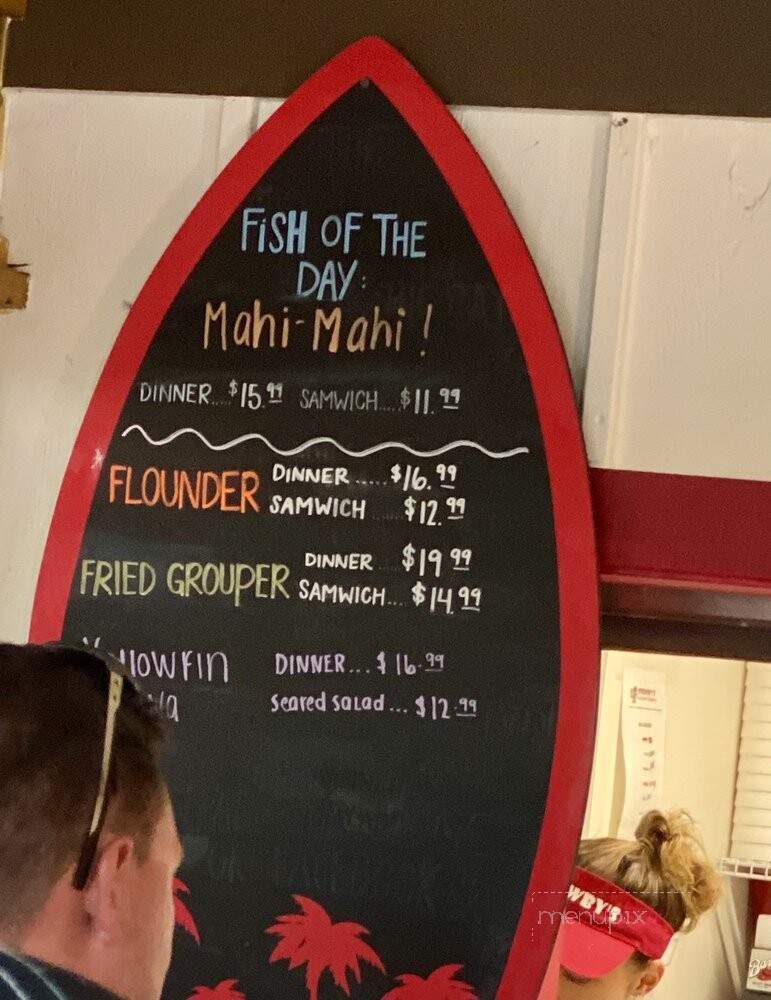 FISH OF THE
DAY:
Mahi-Mahi!
DINNER...$15.99 SAMWICH.....$11.99
FLOUNDER DINNER.....$16.99
SAMWICH ....$12.99
FRIED GROUPER DINNER...$19.99
SAMWICH...$14.99
DINNER...$16.99
Seared Salad...$12.99
WBY'S
menupix